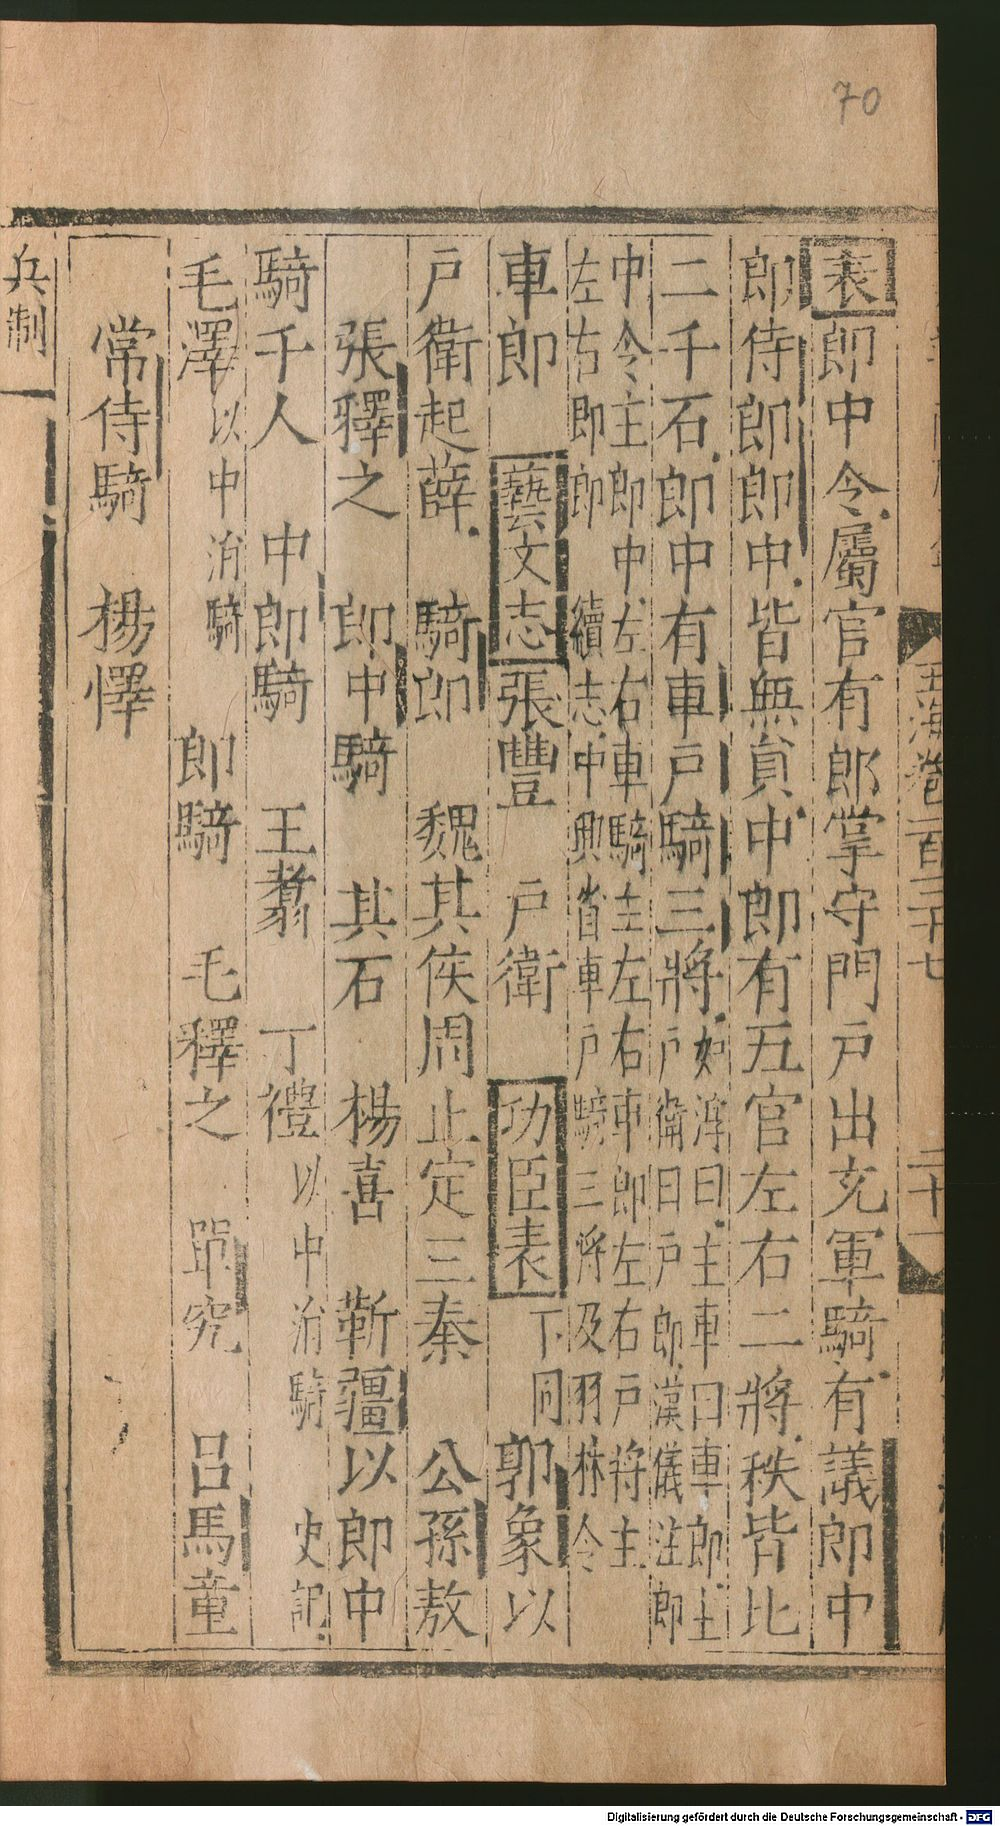 70
玉海卷一百三十七
二十一
表郎中令屬官有郎掌守門戶出充軍騎有議郎中
郎侍郎郎中皆無員中郎有五官左右二將秩皆比
二千石郎中有車戶騎三將如淳曰主車曰車郎主
戶衛曰戶郎漢儀注郎
中令主郎中左右車騎主左右車郎左右戶將主
左右郎郎 續志中興省車戶騎三將及羽林令
車郎 藝文志張豐 戶衛 功臣表下同郭象以
戶衛起薛 騎郎 魏其侯周止定三秦 公孫敖
張釋之 郎中騎 其石 楊喜 靳彊以郎中
騎千人 中郎騎 王翥 丁禮以中涓騎 史記
毛澤以中涓騎 郎騎 毛釋之 單究 呂馬童
常侍騎 楊惲
兵制
Digitalisierung gefördert durch die Deutsche Forschungsgemeinschaft - DFG